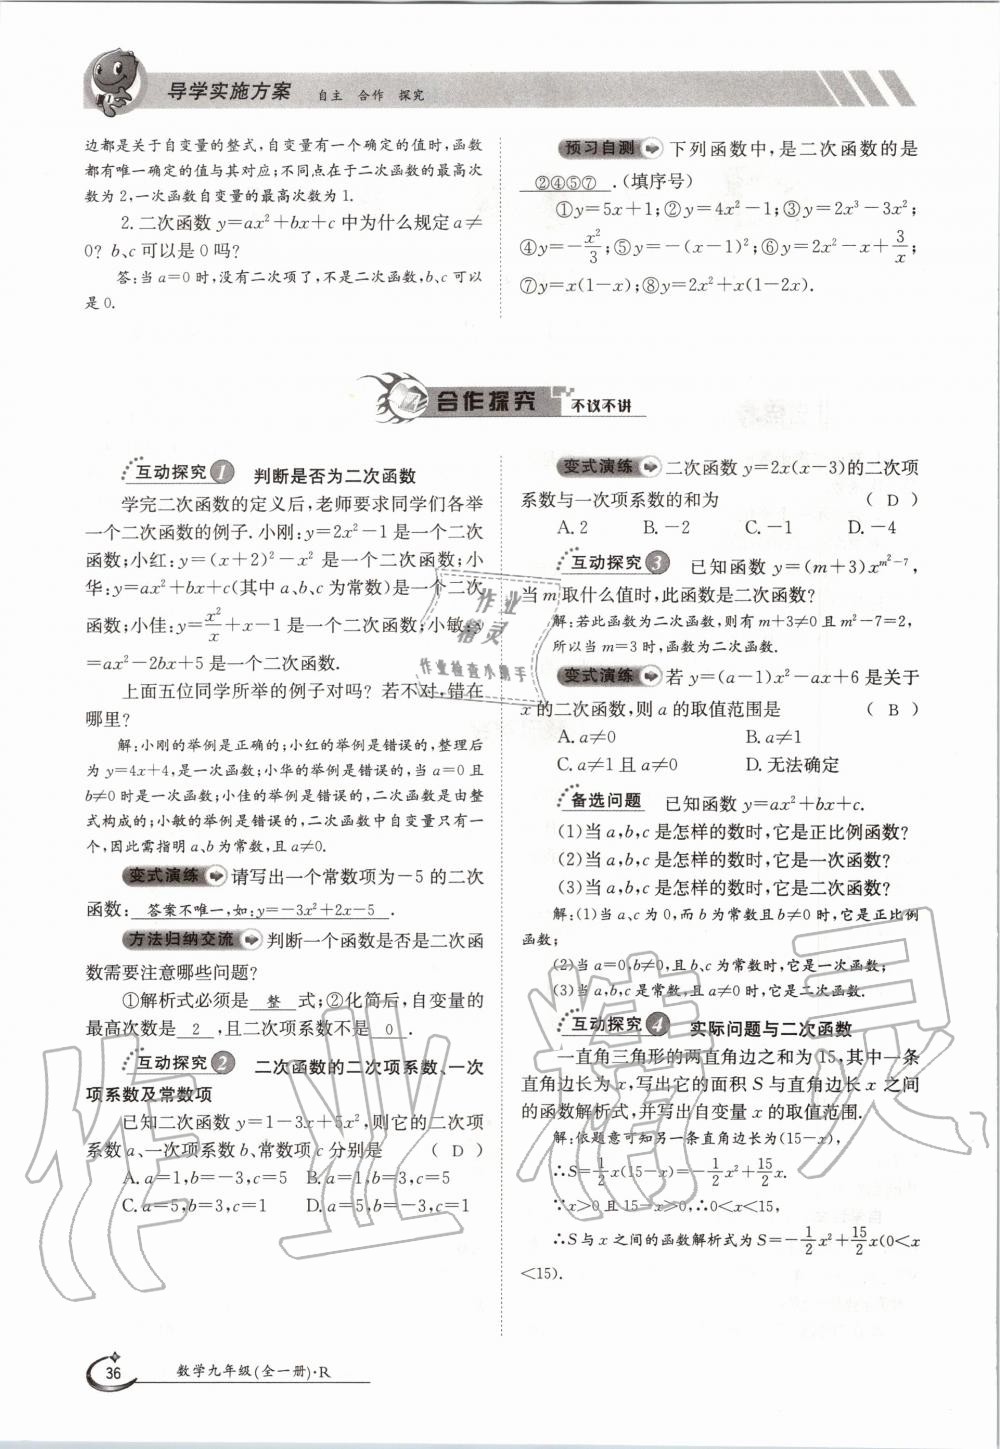 导学实施方案 自主 合作 探究
边都是关于自变量的整式,自变量有一个确定的值时,函数
都有唯一确定的值与其对应;不同点在于二次函数的最高次
数为2,一次函数自变量的最高次数为1.
2.二次函数y=ax²+bx+c中为什么规定a≠
0? b、c可以是0吗?
答:当a=0时,没有二次项了,不是二次函数,b、c可以
是0.
预习自测 下列函数中,是二次函数的是
②④⑤⑦ .(填序号)
①y=5x+1;②y=4x²-1;③y=2x³-3x²;
④y=-x²/3;⑤y=-(x-1)²;⑥y=2x²-x+3/x;
⑦y=x(1-x);⑧y=2x²+x(1-2x).
合作探究 不议不讲
互动探究1 判断是否为二次函数
学完二次函数的定义后,老师要求同学们各举
一个二次函数的例子.小刚:y=2x²-1是一个二次
函数;小红:y=(x+2)²-x²是一个二次函数;小
华:y=ax²+bx+c(其中a、b、c为常数)是一个二次
函数;小佳:y=x²/x+x-1是一个二次函数;小敏:y
=ax²-2bx+5是一个二次函数.
上面五位同学所举的例子对吗? 若不对,错在
哪里?
解:小刚的举例是正确的;小红的举例是错误的,整理后
为y=4x+4,是一次函数;小华的举例是错误的,当a=0且
b≠0时是一次函数;小佳的举例是错误的,二次函数是由整
式构成的;小敏的举例是错误的,二次函数中自变量只有一
个,因此需指明a、b为常数,且a≠0.
变式演练 请写出一个常数项为-5的二次
函数: 答案不唯一,如:y=-3x²+2x-5 .
方法归纳交流 判断一个函数是否是二次函
数需要注意哪些问题?
①解析式必须是 整 式;②化简后,自变量的
最高次数是 2 ,且二次项系数不是 0 .
互动探究2 二次函数的二次项系数、一次
项系数及常数项
已知二次函数y=1-3x+5x²,则它的二次项
系数a、一次项系数b、常数项c分别是 ( D )
A.a=1,b=-3,c=5 B.a=1,b=3,c=5
C.a=5,b=3,c=1 D.a=5,b=-3,c=1
变式演练 二次函数y=2x(x-3)的二次项
系数与一次项系数的和为 ( D )
A.2 B.-2 C.-1 D.-4
互动探究3 已知函数y=(m+3)x^{m²-7},
当m取什么值时,此函数是二次函数?
解:若此函数为二次函数,则有m+3≠0且m²-7=2,
所以当m=3时,函数为二次函数.
变式演练 若y=(a-1)x²-ax+6是关于
x的二次函数,则a的取值范围是 ( B )
A.a≠0 B.a≠1
C.a≠1且a≠0 D.无法确定
备选问题 已知函数y=ax²+bx+c.
(1)当a,b,c是怎样的数时,它是正比例函数?
(2)当a,b,c是怎样的数时,它是一次函数?
(3)当a,b,c是怎样的数时,它是二次函数?
解:(1)当a、c为0,而b为常数且b≠0时,它是正比例
函数;
(2)当a=0,b≠0,且b、c为常数时,它是一次函数;
(3)当a、b,c是常数,且a≠0时,它是二次函数.
互动探究4 实际问题与二次函数
一直角三角形的两直角边之和为15,其中一条
直角边长为x,写出它的面积S与直角边长x之间
的函数解析式,并写出自变量x的取值范围.
解:依题意可知另一条直角边长为(15-x),
∴S=1/2x(15-x)=-1/2x²+15/2x.
∵x>0且15-x>0,∴0<x<15,
∴S与x之间的函数解析式为S=-1/2x²+15/2x(0<x
<15).
作业
精灵
作业检查小帮手
作业精灵
36 数学九年级(全一册)·R